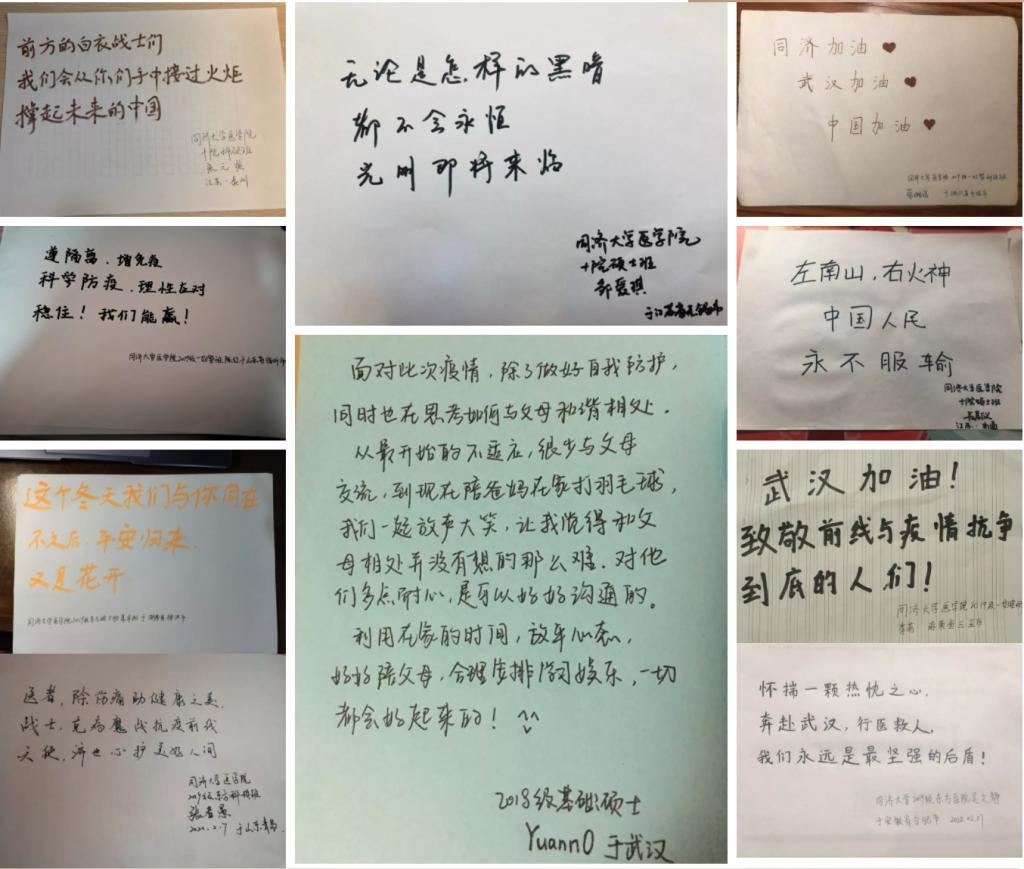 前方的白衣战士们
我们会从你们手中接过火炬
撑起未来的中国
同济大学医学院
十院科硕班
江苏·泰州
遵隔离、增免疫
科学防疫、理性应对
稳住！我们能赢！
这个冬天我们与你同在
不久后、平安归来、
又是花开
医者，除伤痛助健康之美
战士，克病魔战抗疫前线
天使，济世心护美好人间
同济大学医学院
2019级东方科硕班
2020.2.7 于山东青岛
无论是怎样的黑暗
都不会永恒
光明即将来临
同济大学医学院
十院硕士班
于江苏省无锡市
面对此次疫情，除了做好自我防护，
同时也在思考如何与父母和谐相处。
从最开始的不适应，很少与父母
交流，到现在陪爸妈在家打羽毛球，
我们一起放声大笑，让我觉得和父
母相处并没有想的那么难。对他
们多点耐心，是可以好好沟通的。
利用在家的时间，放平心态，
好好陪父母，合理安排学习娱乐，一切
都会好起来的！^^
2018级基础硕士
YuannO 于武汉
同济加油 ♥
武汉加油 ♥
中国加油 ♥
左南山，右火神
中国人民
永不服输
同济大学医学院
十院硕士班
江苏·南通
武汉加油！
致敬前线与疫情抗争
到底的人们！
怀揣一颗热忱之心，
奔赴武汉，行医救人，
我们永远是最坚强的后盾！
同济大学2019级东方医院吴文静
于安徽省合肥市 2020.02.07